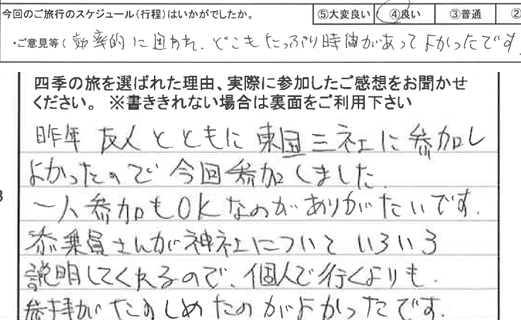 今回のご旅行のスケジュール(行程)はいかがでしたか。 ⑤大変良い ④良い ③普通 ②
・ご意見等(効率的に回われ、どこもたっぷり時間があってよかったです
四季の旅を選ばれた理由、実際に参加したご感想をお聞かせ
ください。 ※書ききれない場合は裏面をご利用下さい
昨年友人とともに東国三社に参加し
よかったので今回参加しました。
一人参加もOKなのがありがたいです。
添乗員さんが神社についていろいろ
説明してくれるので、個人で行くよりも
参拝がたのしめたのがよかったです。